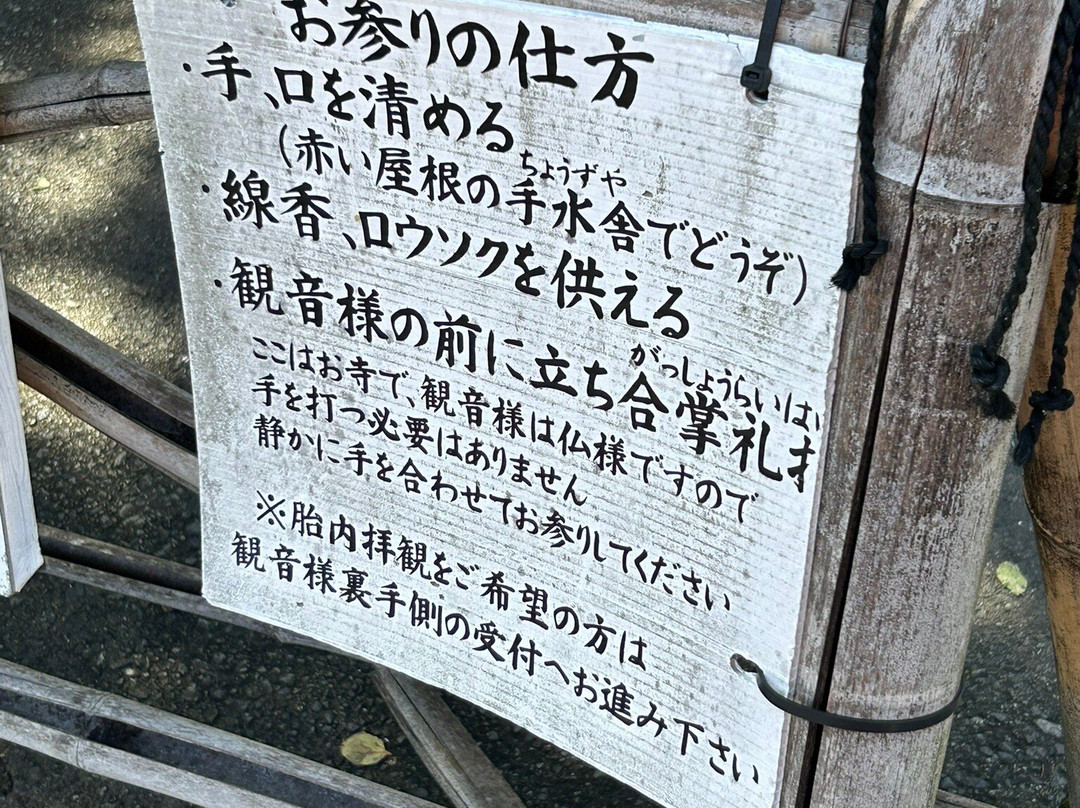 お参りの仕方
・手、口を清める
(赤い屋根の手水舎でどうぞ)
ちょうずや
・線香、ロウソクを供える
・観音様の前に立ち合掌礼拝
がっしょうらいはい
ここはお寺で、観音様は仏様ですので
手を打つ必要はありません
静かに手を合わせてお参りしてください
※胎内拝観をご希望の方は
観音様裏手側の受付へお進み下さい